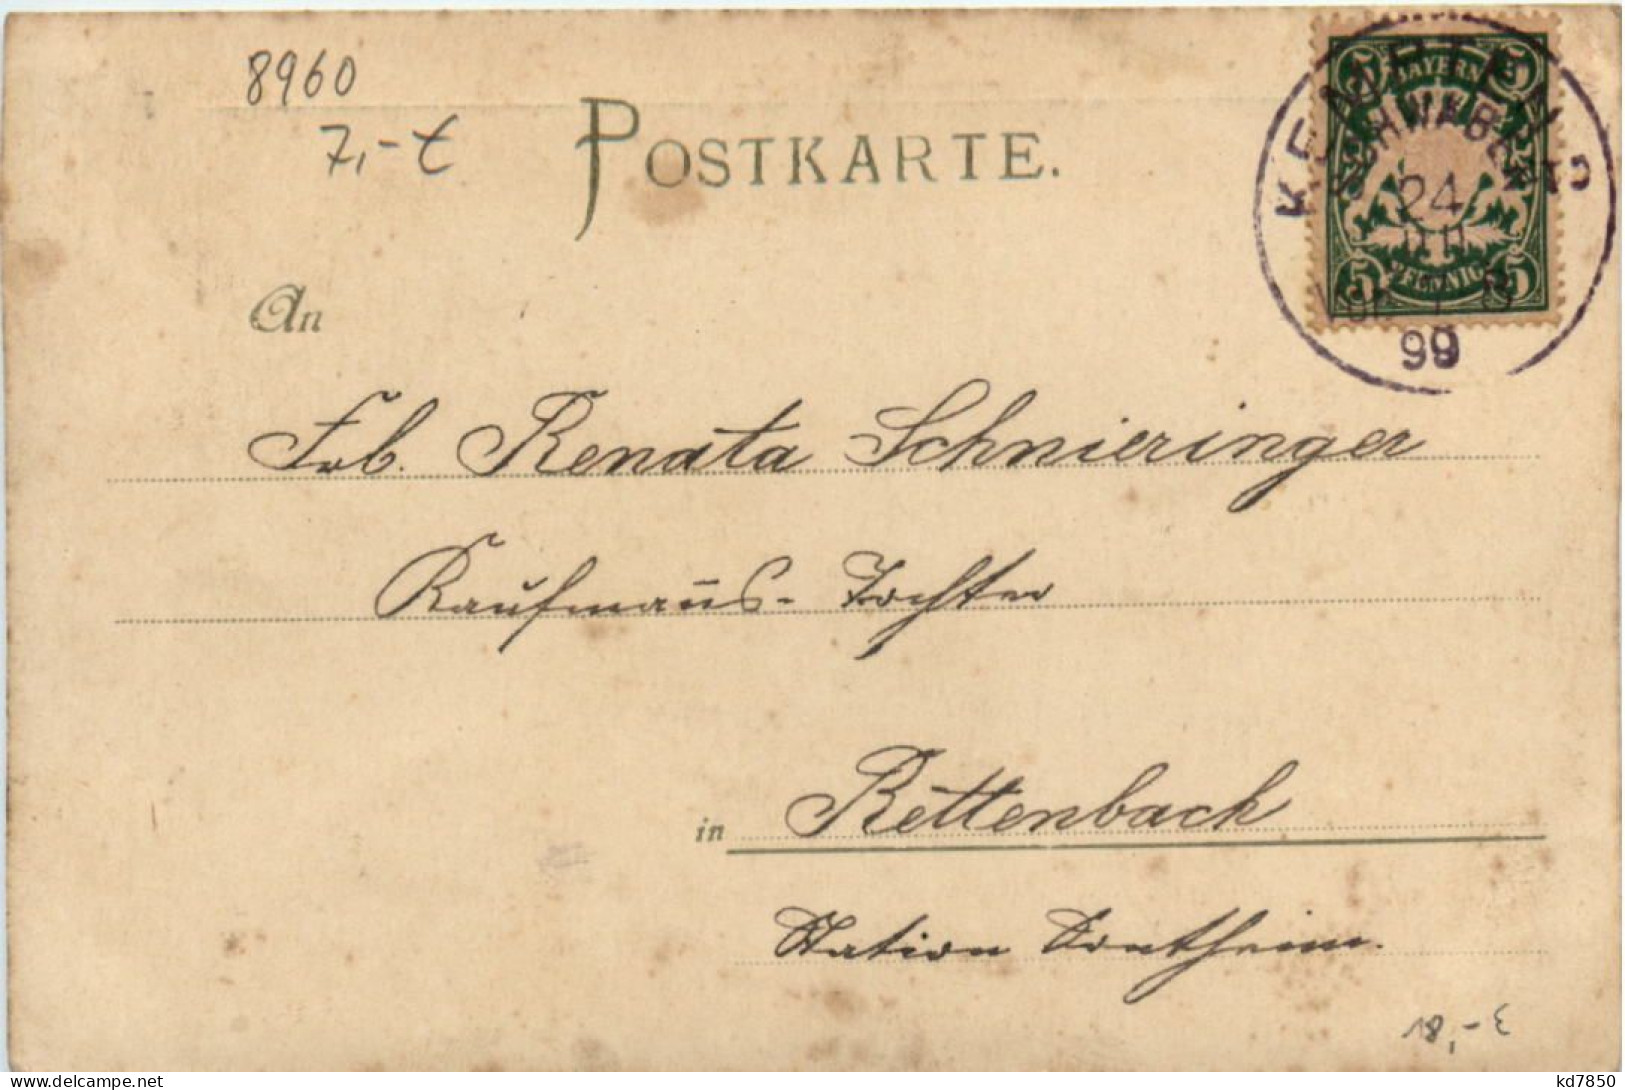 8960
7,-€
POSTKARTE.
BAYERN
5 5
5 5
PFENNIG
KEMPTEN
SCHWABEN
24
99
An
Frl. Renata Schnieringer
Kaufmanns- Tochter
in Rettenbach
Station Sontheim.
18,-€
kd7850